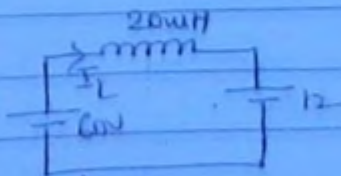 20mH
I_L
60V
12